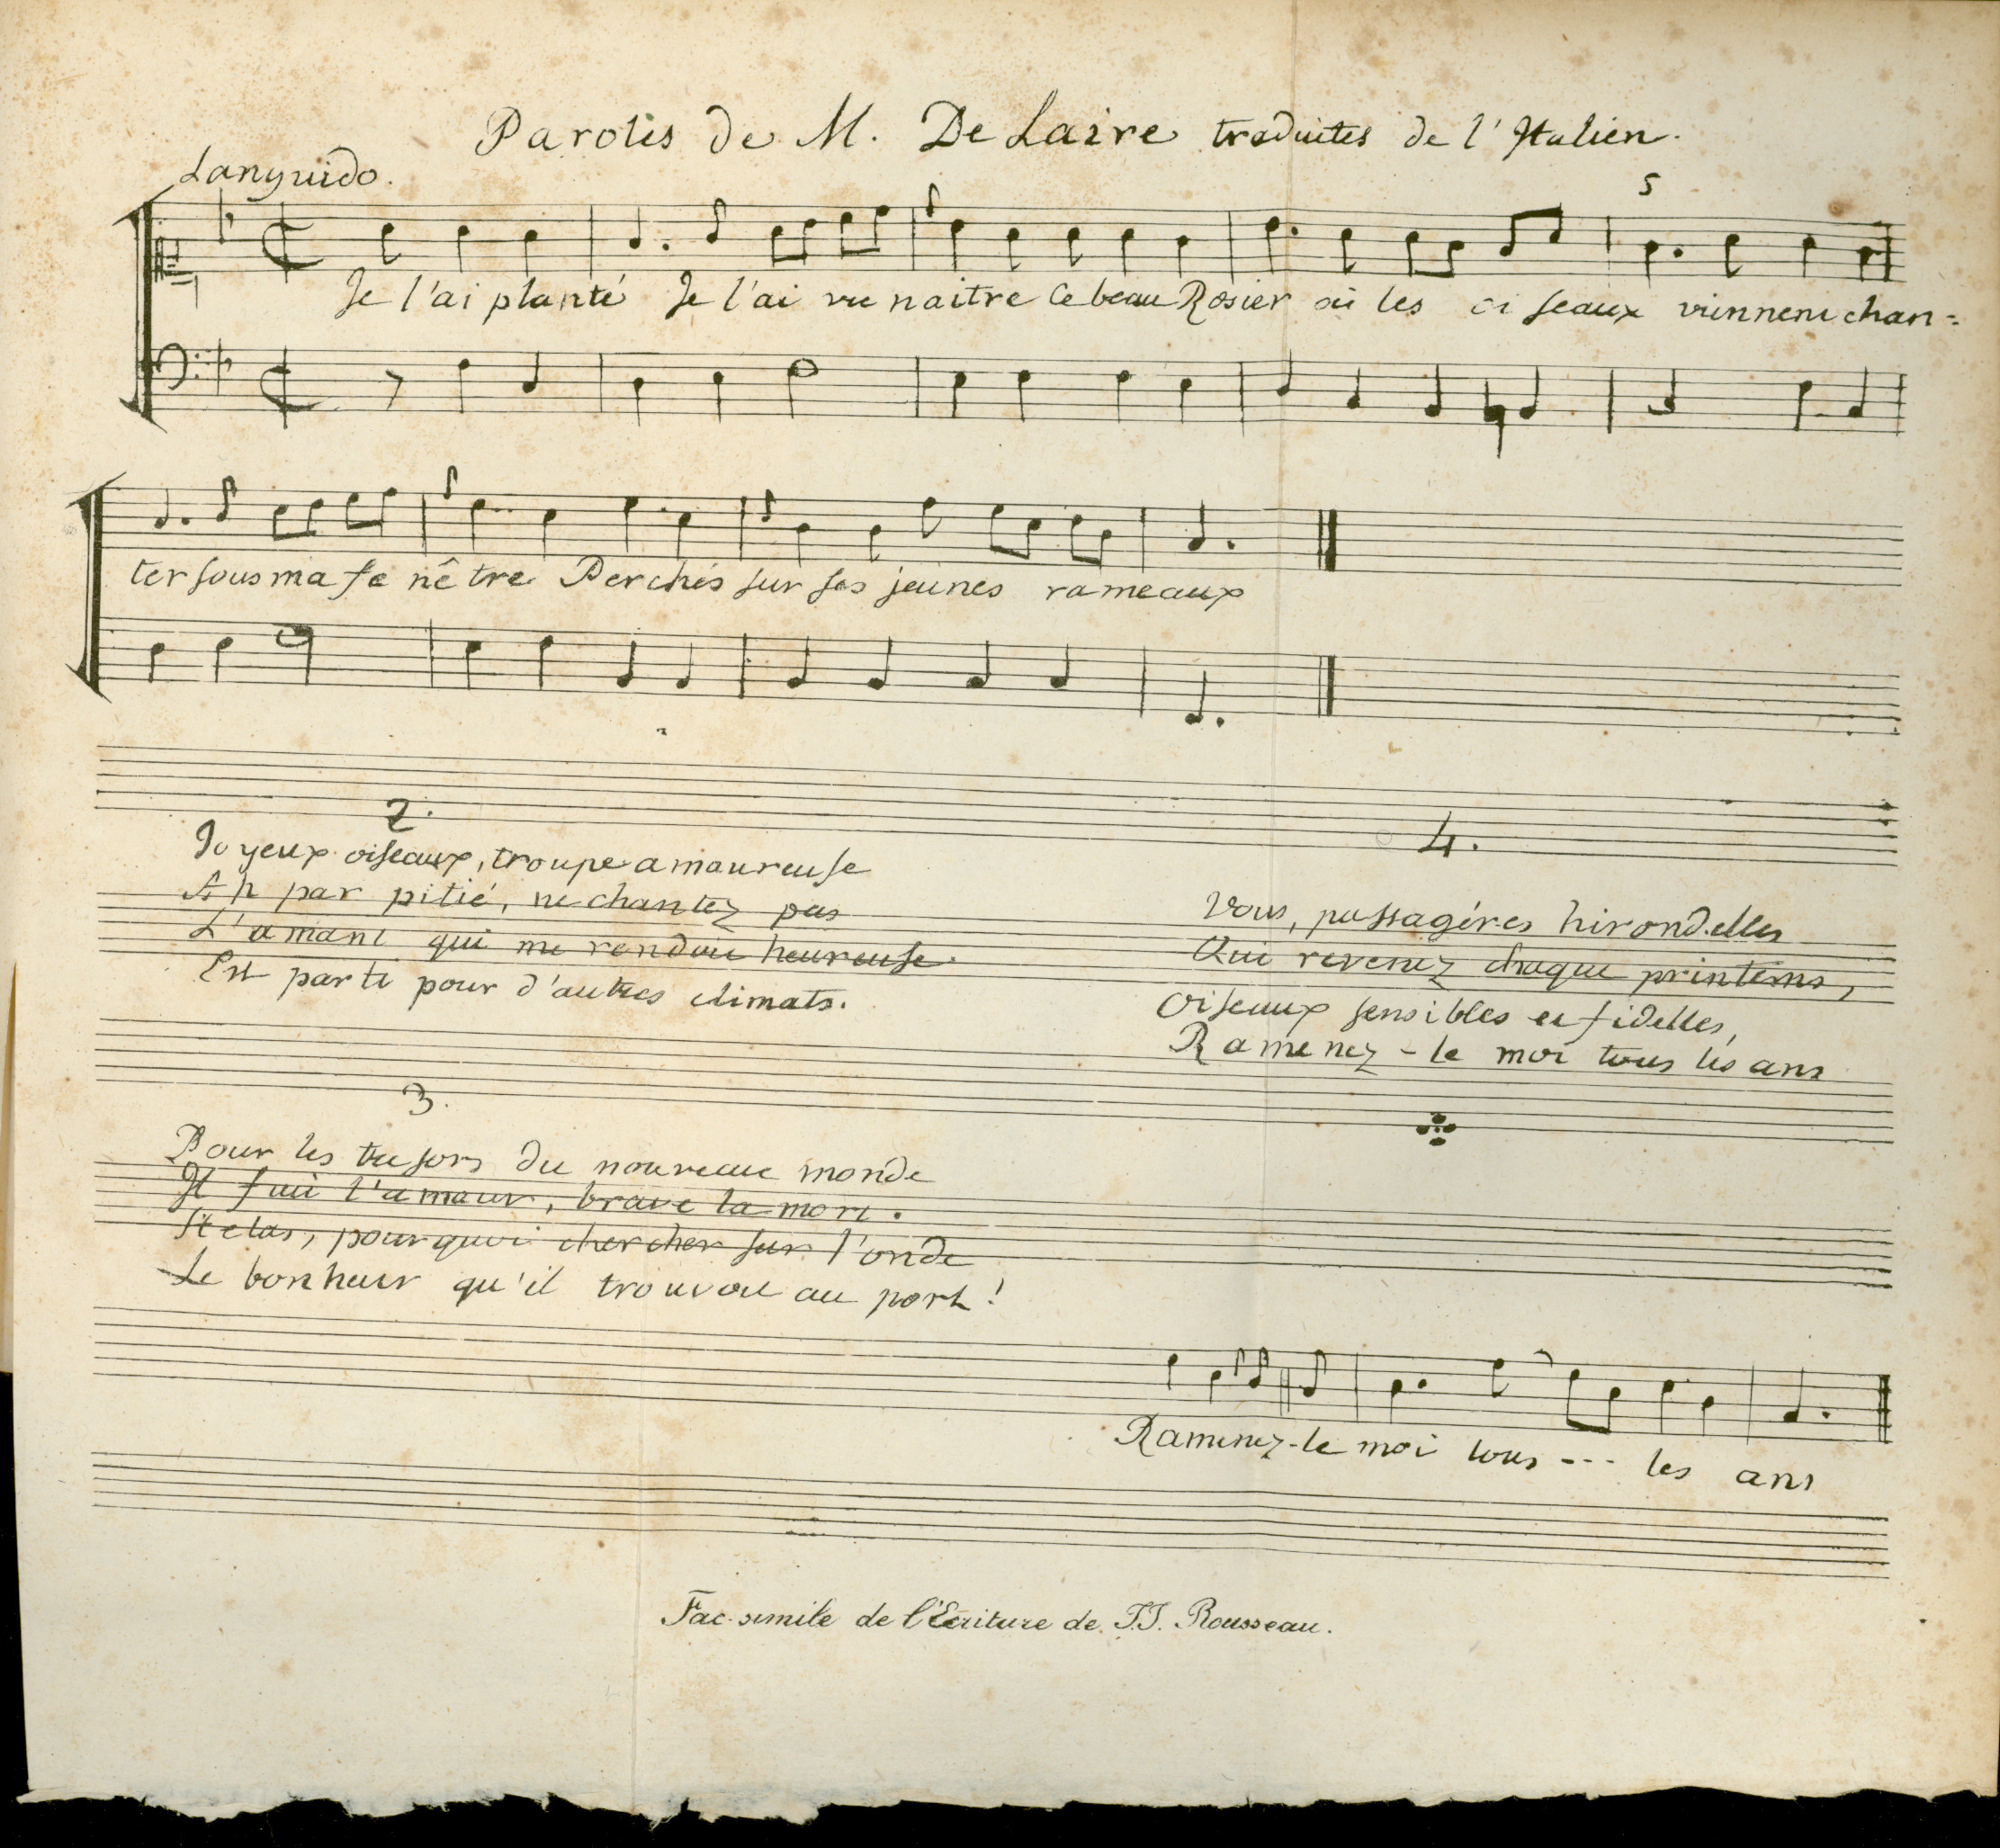 Paroles de M. De Laire traduites de l'Italien.
Languido.
5
Je l'ai planté Je l'ai vu naitre Ce beau Rosier où les oi seaux viennent chan=
ter sous ma fe nêtre Perchés sur ses jeunes rameaux
2.
Joyeux oiseaux, troupe amoureuse
Ah par pitié, ne chantez pas
L'amant qui me rendoit heureuse.
Est parti pour d'autres climats.
3.
Pour les tresors du nouveau monde
Il fuit l'amour, brave la mort.
Helas, pourquoi chercher sur l'onde
Le bonheur qu'il trouvoit au port!
4.
Vous, passagéres hirondelles
Qui revenez chaque printems,
Oiseaux sensibles et fidelles,
Ramenez-le moi tous les ans
Ramenez-le moi tous --- les ans
Fac-simile de l'Ecriture de J.J. Rousseau.